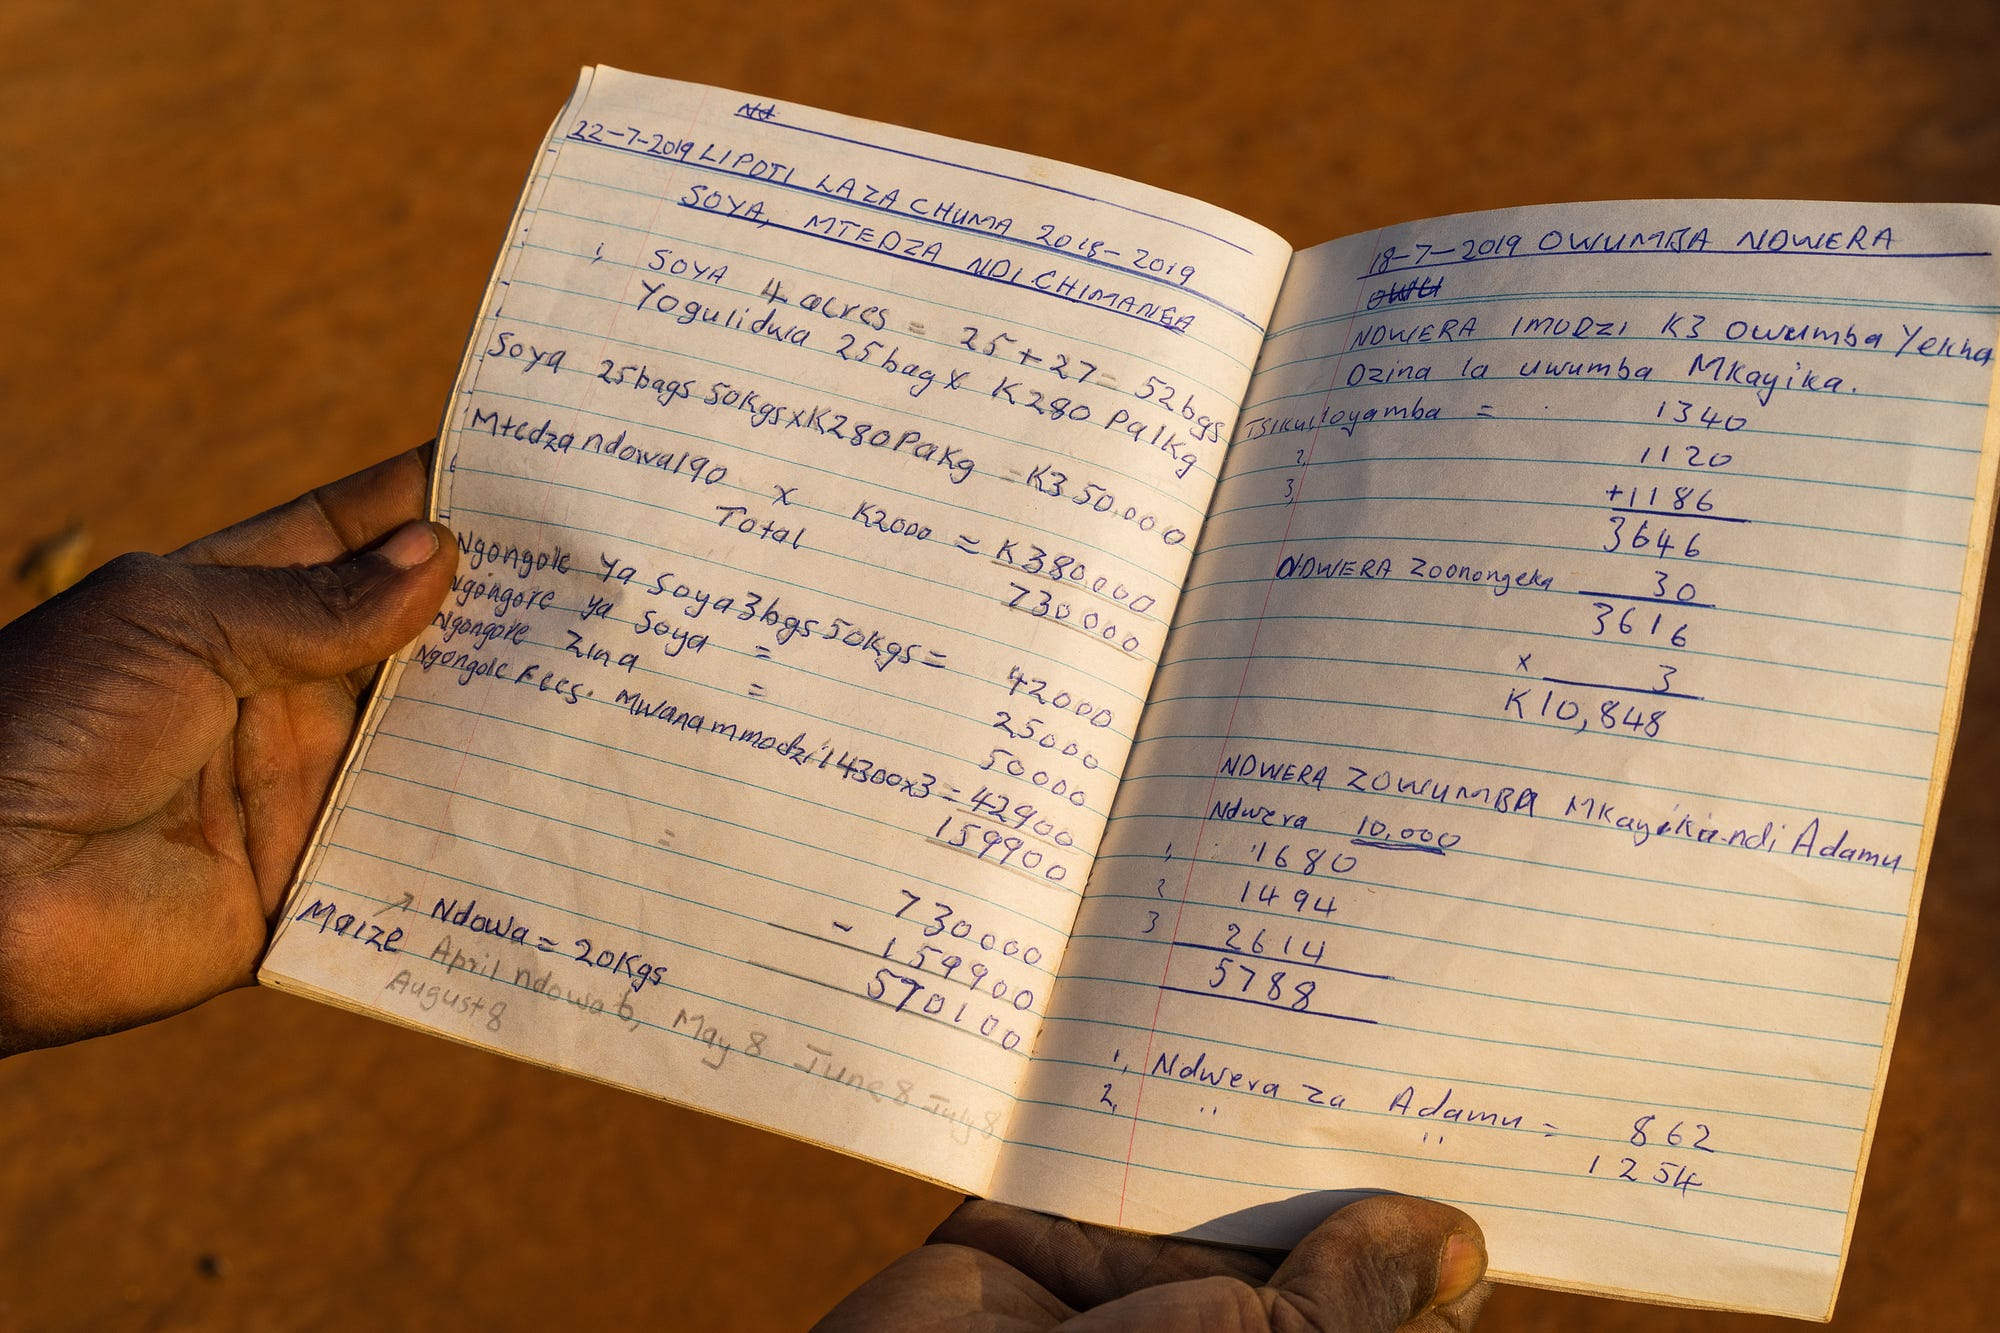 Nd
22-7-2019 LIPOTI LAZA CHUMA 2018-2019
SOYA, MTEDZA NDI CHIMANGA
1, SOYA 4 acres = 25+27= 52bgs
Yogulidwa 25bag x K280 Pa1Kg
Soya 25bags 50Kgs x K280 PaKg = K350,000
Mtedza ndowa 190 x K2000 = K380000
Total 730000
Ngongole Ya Soya 3bgs 50Kgs = 42000
Ngongole ya Soya = 25000
Ngongole Zina = 50000
Ngongole Fees. Mwana mmodzi 14300x3 = 42900
= 159900
730000
- 159900
570100
Maize → Ndowa = 20Kgs
April ndowa 6, May 8 June 8 July 8
August 8
18-7-2019 OWUMBA NDWERA
owu
NDWERA IMODZI K3 Owumba Yekha
Dzina la uwumba Mkayika.
Tsiku loyamba = 1340
2, 1120
3, +1186
3646
NDWERA Zoonongeka 30
3616
x 3
K10,848
NDWERA ZOWUMBA Mkayika ndi Adamu
Ndwera 10,000
1, 1680
2 1494
3 2614
5788
1, Ndwera za Adamu = 862
2, " " 1254